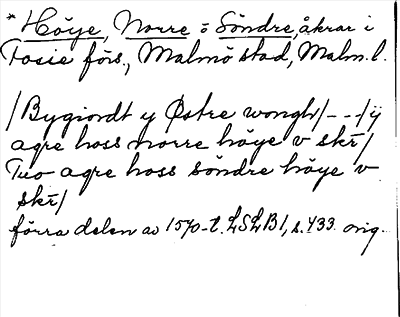 * Höye, Norre = Söndre, åkrar i
Fosie förs., Malmö stad, Malm. l.
/Bygiordt y Østre wongh/---/ij
agre hoss norre höye v skr/
Tuo agre hoss söndre höye v
skr/
förra delen av 1570-t. LSLB1, s. 433 orig.